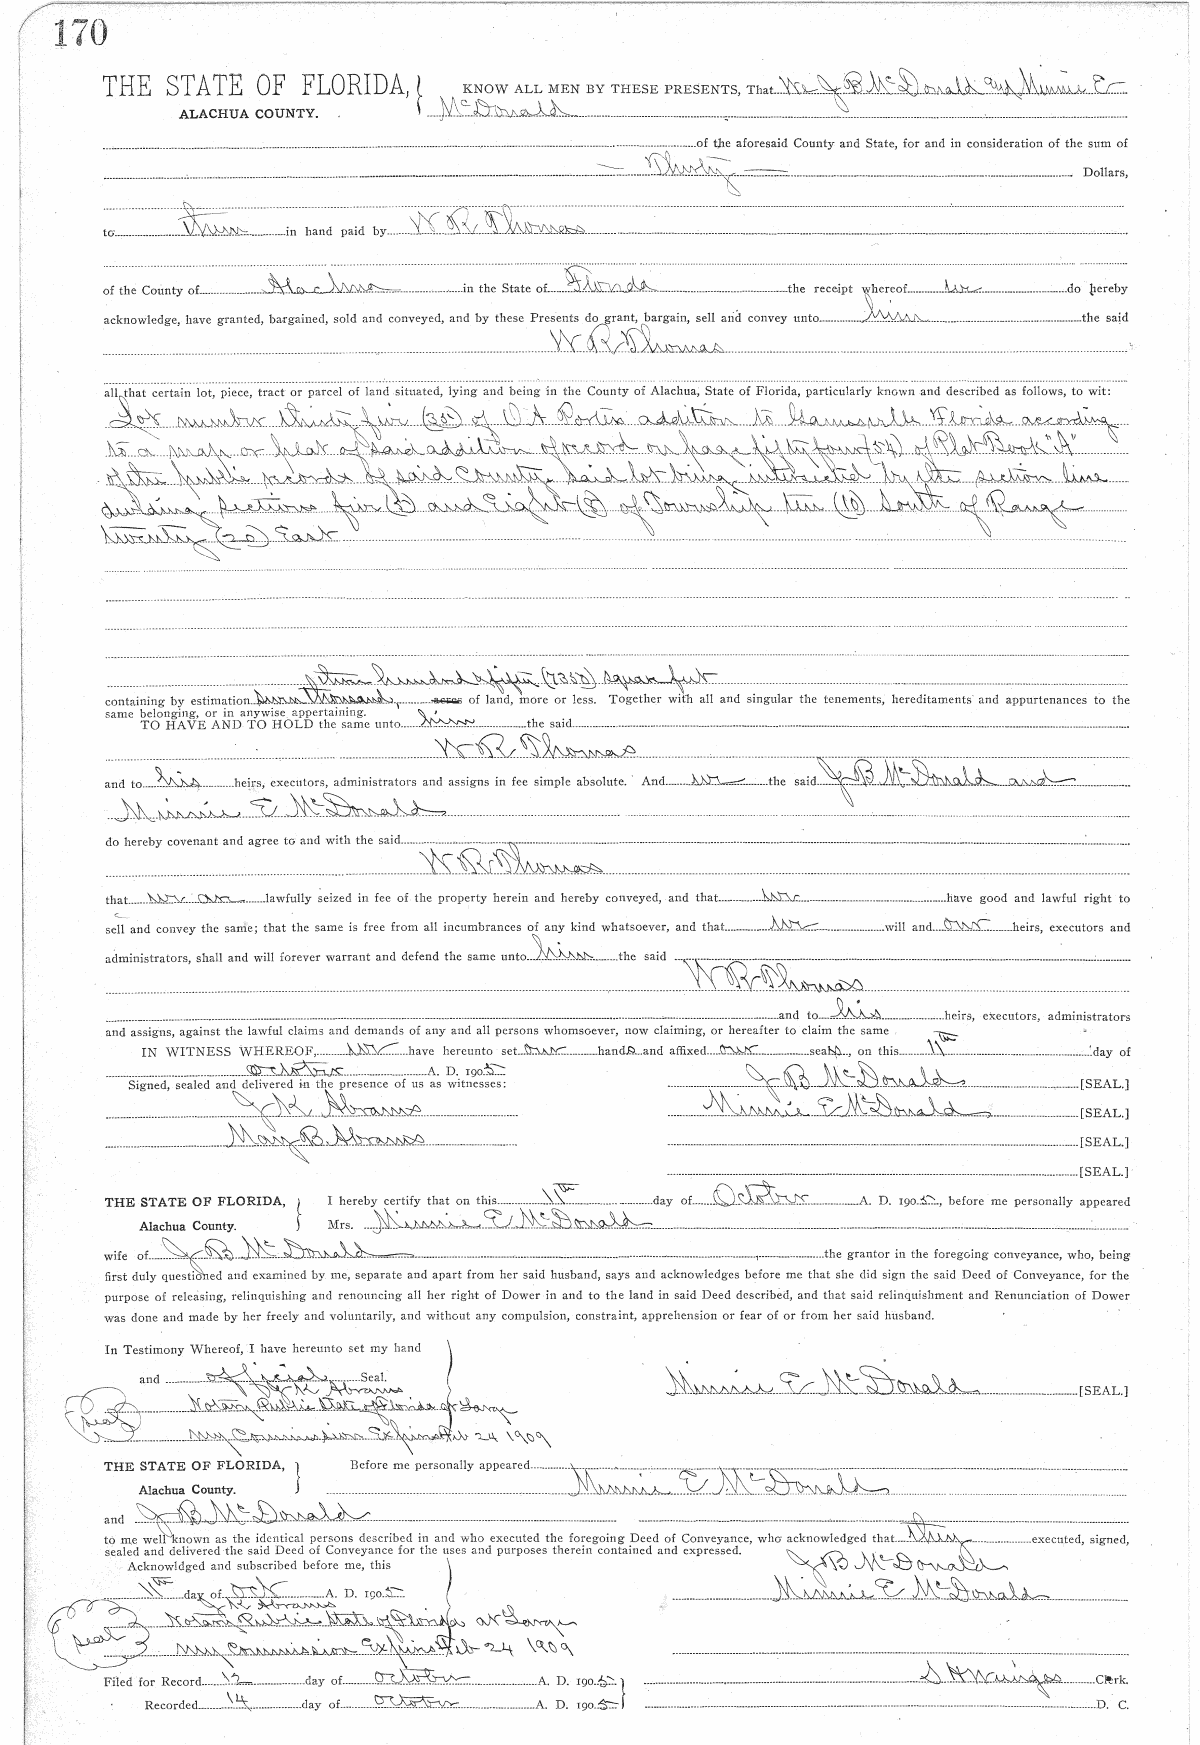 170
THE STATE OF FLORIDA, KNOW ALL MEN BY THESE PRESENTS, That We J B McDonald and Minnie E
ALACHUA COUNTY. McDonald
of the aforesaid County and State, for and in consideration of the sum of
— Thirty — Dollars,
to them in hand paid by W R Thomas
of the County of Alachua in the State of Florida the receipt whereof we do hereby
acknowledge, have granted, bargained, sold and conveyed, and by these Presents do grant, bargain, sell and convey unto him the said
W R Thomas
all that certain lot, piece, tract or parcel of land situated, lying and being in the County of Alachua, State of Florida, particularly known and described as follows, to wit:
Lot number thirty five (35) of O A Porters addition to Gainesville Florida according
to a map or plat of said addition of record on page fifty four (54) of Plat Book "A"
of the public records of said County, said lot being intersected by the section line
dividing Sections five (5) and Eight (8) of Township ten (10) South of Range
twenty (20) East
three hundred & fifty (7350) square feet
containing by estimation seven thousand, acres of land, more or less. Together with all and singular the tenements, hereditaments and appurtenances to the
same belonging, or in anywise appertaining.
TO HAVE AND TO HOLD the same unto him the said
W R Thomas
and to his heirs, executors, administrators and assigns in fee simple absolute. And we the said J B McDonald and
Minnie E McDonald
do hereby covenant and agree to and with the said
W R Thomas
that we are lawfully seized in fee of the property herein and hereby conveyed, and that we have good and lawful right to
sell and convey the same; that the same is free from all incumbrances of any kind whatsoever, and that we will and our heirs, executors and
administrators, shall and will forever warrant and defend the same unto him the said
W R Thomas
and to his heirs, executors, administrators
and assigns, against the lawful claims and demands of any and all persons whomsoever, now claiming, or hereafter to claim the same
IN WITNESS WHEREOF, we have hereunto set our hands and affixed our seals, on this 11th day of
October A. D. 1905
Signed, sealed and delivered in the presence of us as witnesses: J B McDonald [SEAL.]
J K Abrams Minnie E McDonald [SEAL.]
May B Abrams [SEAL.]
[SEAL.]
THE STATE OF FLORIDA, I hereby certify that on this 11th day of October A. D. 1905, before me personally appeared
Alachua County. Mrs. Minnie E McDonald
wife of J B McDonald the grantor in the foregoing conveyance, who, being
first duly questioned and examined by me, separate and apart from her said husband, says and acknowledges before me that she did sign the said Deed of Conveyance, for the
purpose of releasing, relinquishing and renouncing all her right of Dower in and to the land in said Deed described, and that said relinquishment and Renunciation of Dower
was done and made by her freely and voluntarily, and without any compulsion, constraint, apprehension or fear of or from her said husband.
In Testimony Whereof, I have hereunto set my hand
and official Seal. Minnie E McDonald [SEAL.]
J K Abrams
seal Notary Public State of Florida at Large
My Commission Expires Feb 24 1909
THE STATE OF FLORIDA, Before me personally appeared
Alachua County. Minnie E McDonald
and J B McDonald
to me well known as the identical persons described in and who executed the foregoing Deed of Conveyance, who acknowledged that they executed, signed,
sealed and delivered the said Deed of Conveyance for the uses and purposes therein contained and expressed.
Acknowldged and subscribed before me, this J B McDonald
11th day of Oct A. D. 1905 Minnie E McDonald
J K Abrams
seal Notary Public State of Florida at Large
My Commission Expires Feb 24 1909
Filed for Record 12 day of October A. D. 1905 S H Wienges Clerk.
Recorded 14 day of October A. D. 1905 D. C.